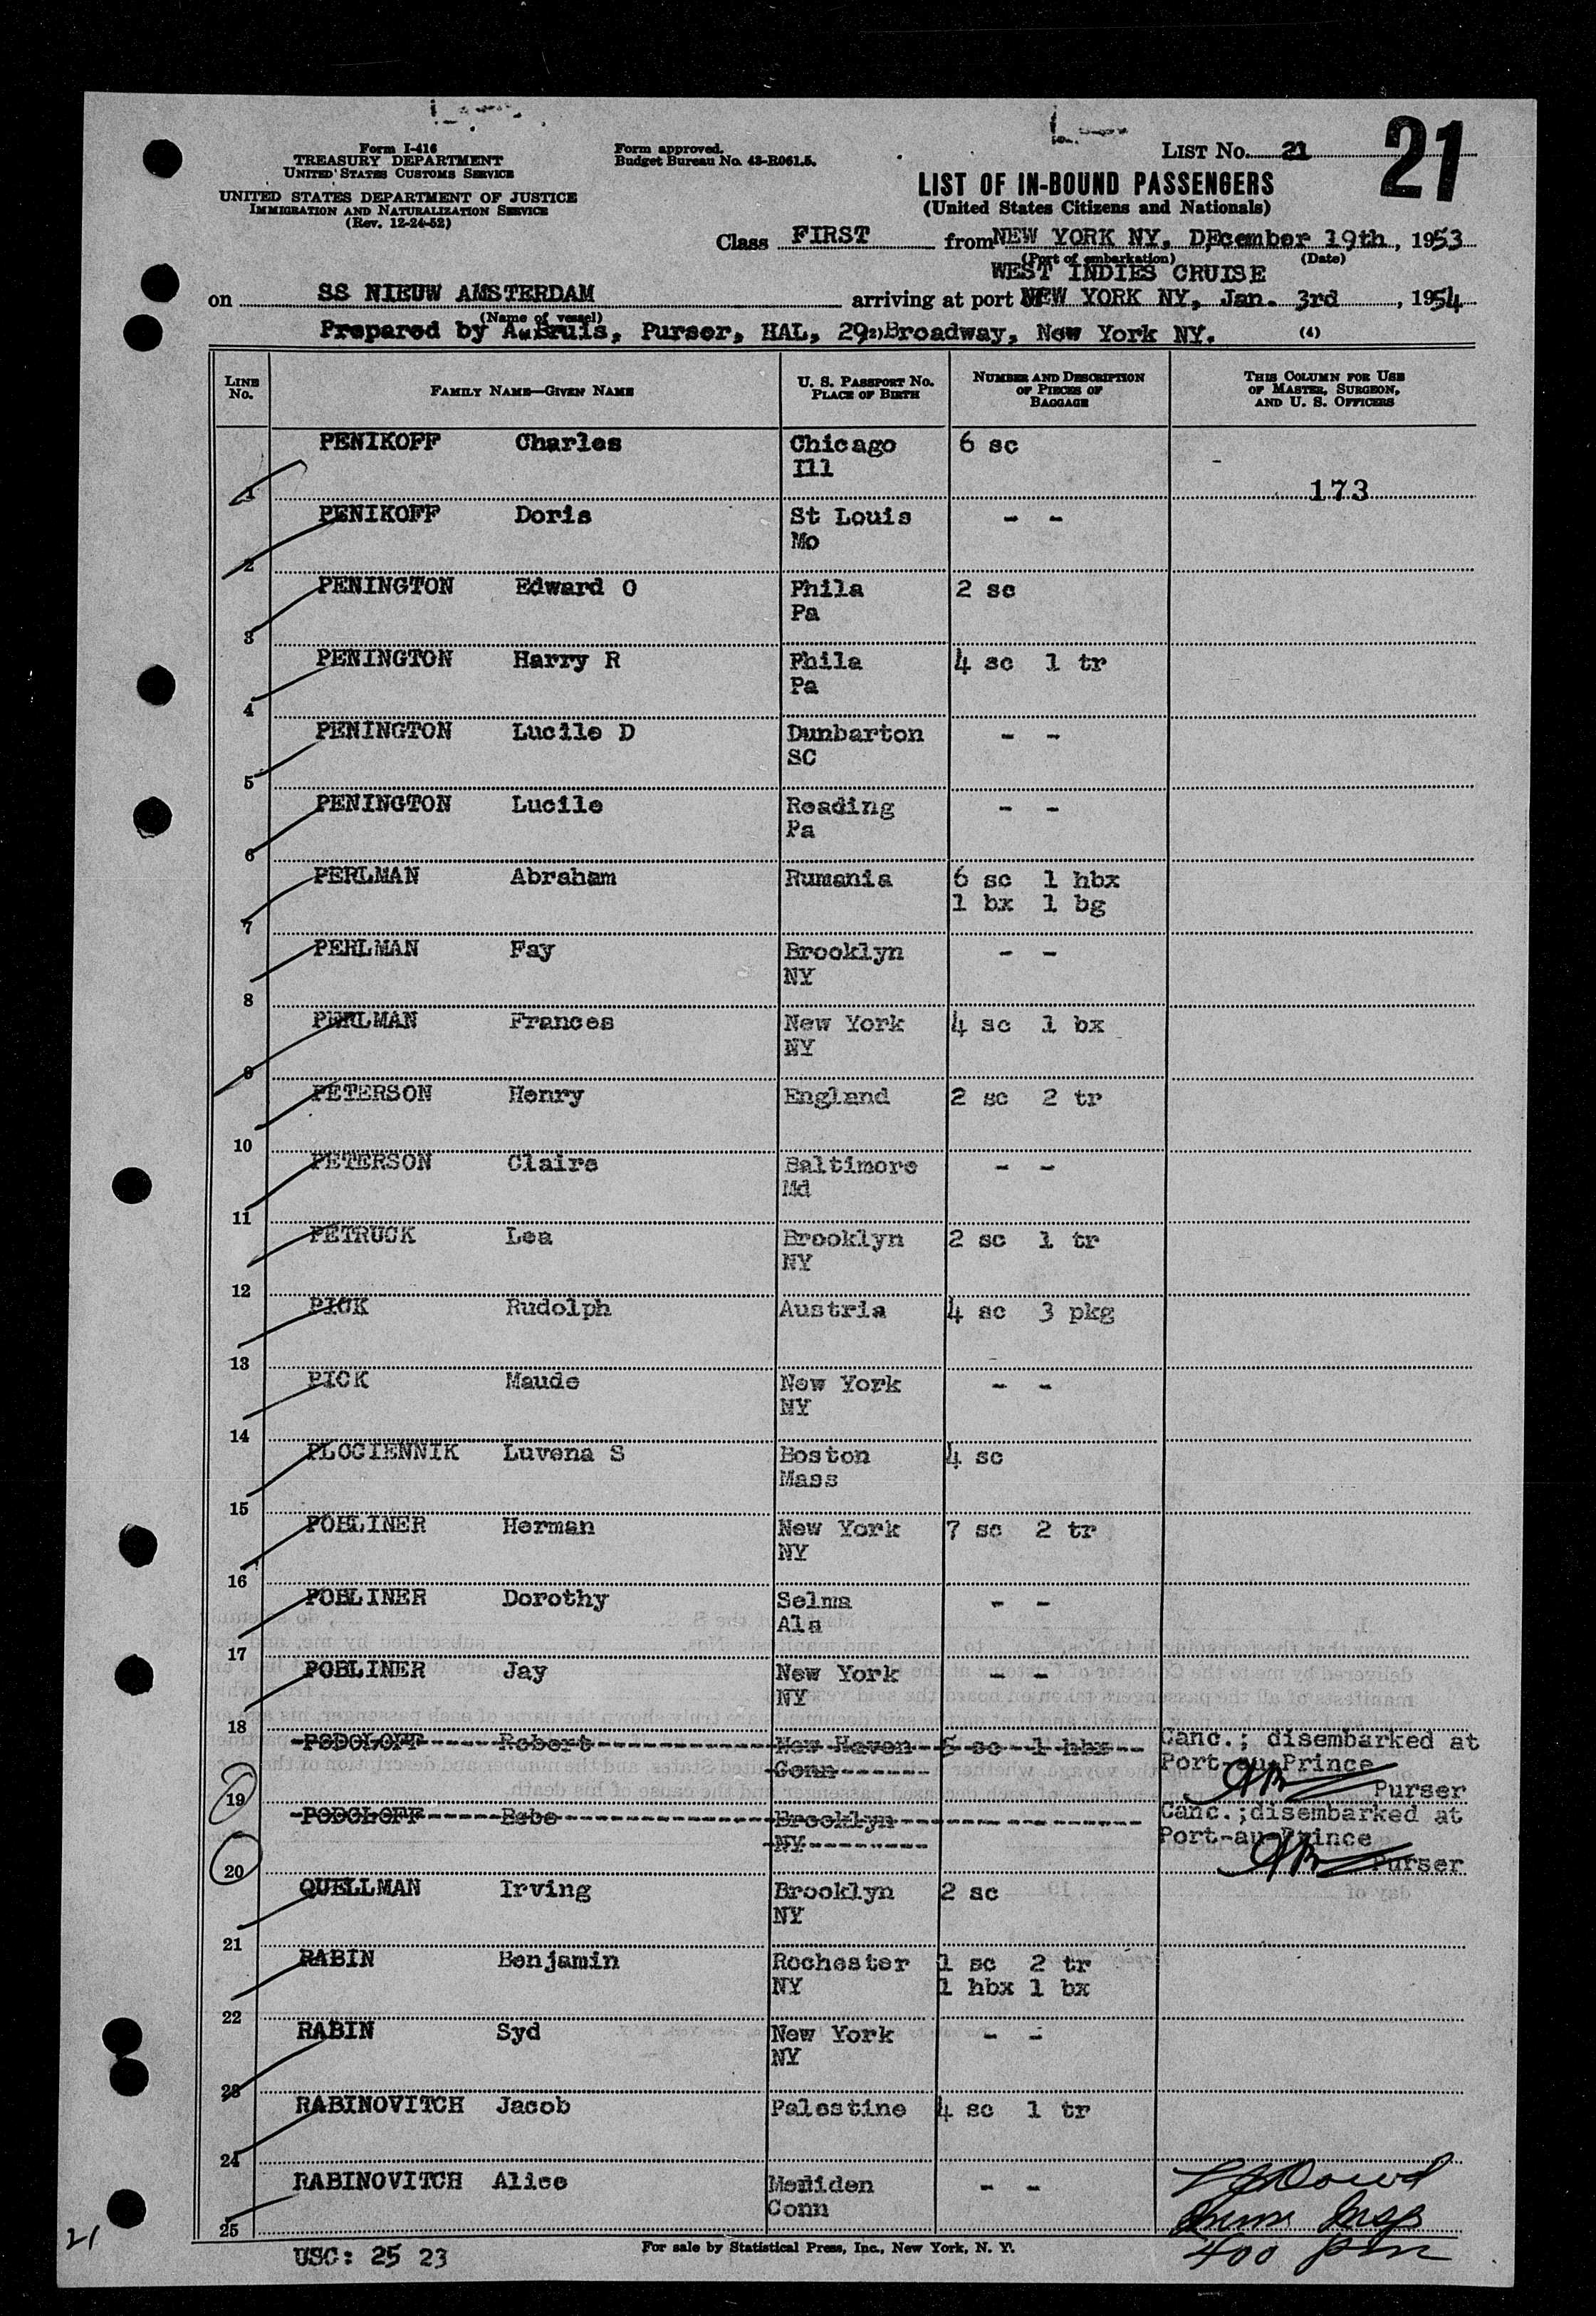 Form I-416
TREASURY DEPARTMENT
UNITED STATES CUSTOMS SERVICE
UNITED STATES DEPARTMENT OF JUSTICE
IMMIGRATION AND NATURALIZATION SERVICE
(Rev. 12-24-52)
Form approved.
Budget Bureau No. 43-R061.5.
LIST No. 21
21
LIST OF IN-BOUND PASSENGERS
(United States Citizens and Nationals)
Class FIRST from NEW YORK NY, DEcember 19th, 1953
(Port of embarkation) (Date)
WEST INDIES CRUISE
on SS NIEUW AMSTERDAM arriving at port of NEW YORK NY, Jan. 3rd, 1954
(Name of vessel)
Prepared by A. Bruis, Purser, HAL, 29 Broadway, New York NY. (4)
LINE No. FAMILY NAME—GIVEN NAME U. S. PASSPORT No. PLACE OF BIRTH NUMBER AND DESCRIPTION OF PIECES OF BAGGAGE THIS COLUMN FOR USE OF MASTER, SURGEON, AND U. S. OFFICERS
PENIKOFF Charles Chicago 6 sc
Ill
1 173
PENIKOFF Doris St Louis - -
Mo
2
PENINGTON Edward O Phila 2 sc
Pa
3
PENINGTON Harry R Phila 4 sc 1 tr
Pa
4
PENINGTON Lucile D Dunbarton - -
SC
5
PENINGTON Lucile Reading - -
Pa
6
PERLMAN Abraham Rumania 6 sc 1 hbx
1 bx 1 bg
7
PERLMAN Fay Brooklyn - -
NY
8
PERLMAN Frances New York 4 sc 1 bx
NY
9
PETERSON Henry England 2 sc 2 tr
10
PETERSON Claire Baltimore - -
Md
11
PETRUCK Lea Brooklyn 2 sc 1 tr
NY
12
PICK Rudolph Austria 4 sc 3 pkg
13
PICK Maude New York - -
NY
14
PLOCIENNIK Luvena S Boston 4 sc
Mass
15
POBLINER Herman New York 7 sc 2 tr
NY
16
POBLINER Dorothy Selma - -
Ala
17
POBLINER Jay New York - -
NY
18
PODOLOFF Robert New Haven 5 sc 1 hbx Canc.; disembarked at
Conn Port-au-Prince
19 Purser
PODOLOFF Bebe Brooklyn Canc.;disembarked at
NY Port-au-Prince
20 Purser
QUELLMAN Irving Brooklyn 2 sc
NY
21
RABIN Benjamin Rochester 1 sc 2 tr
NY 1 hbx 1 bx
22
RABIN Syd New York - -
NY
23
RABINOVITCH Jacob Palestine 4 sc 1 tr
24
RABINOVITCH Alice Meriden - -
Conn
25
Insp
400 pm
21
USC: 25 23
For sale by Statistical Press, Inc., New York, N. Y.